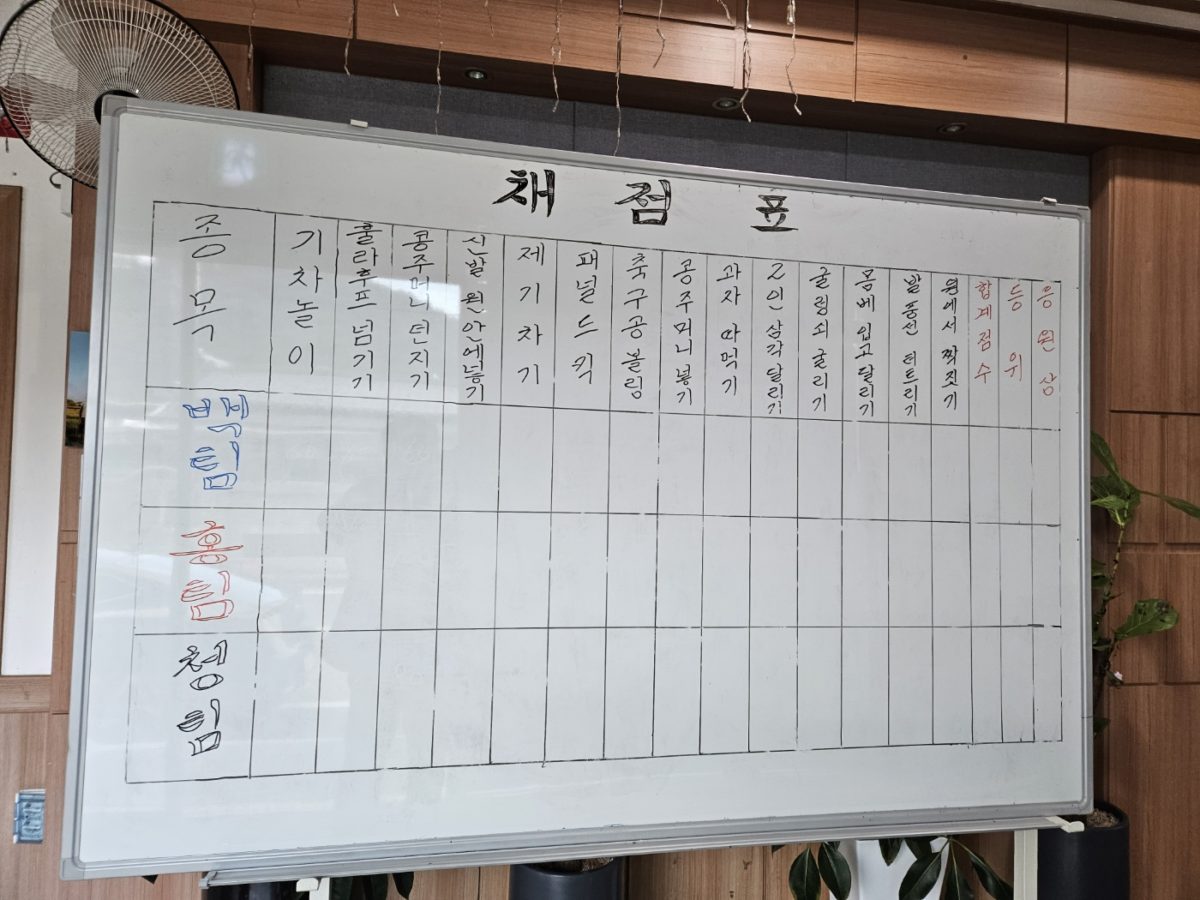 채 점 표
종목
기차놀이
훌라후프 넘기기
콩주머니 던지기
신발 원안에넣기
제기차기
패널드킥
축구공볼링
콩주머니넣기
과자 따먹기
2인 삼각달리기
굴렁쇠 굴리기
몸베 입고달리기
발풍선 터트리기
원에서 짝짓기
합계점수
등위
응원상
백팀
홍팀
청팀